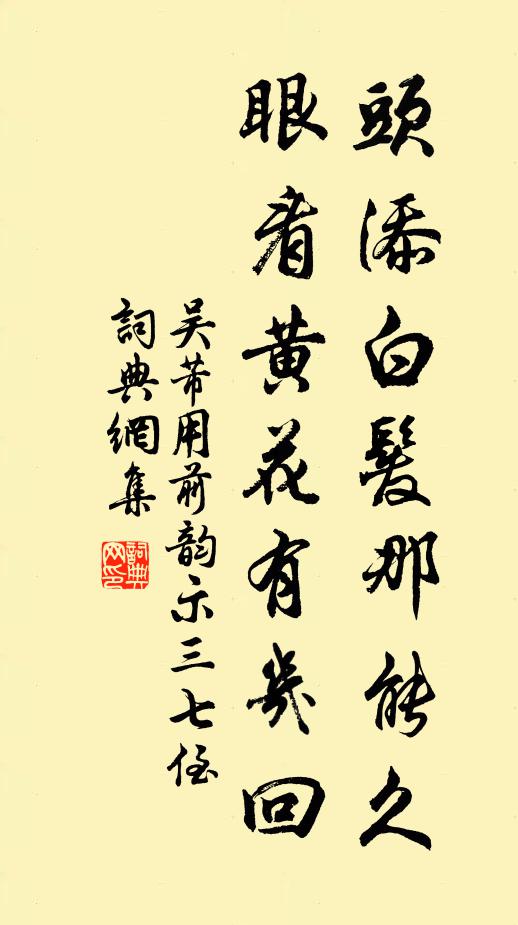 頭添白髮那能久
眼看黃花有幾回
吳芾用前韵示三七侄
詞典網集
詞典网印